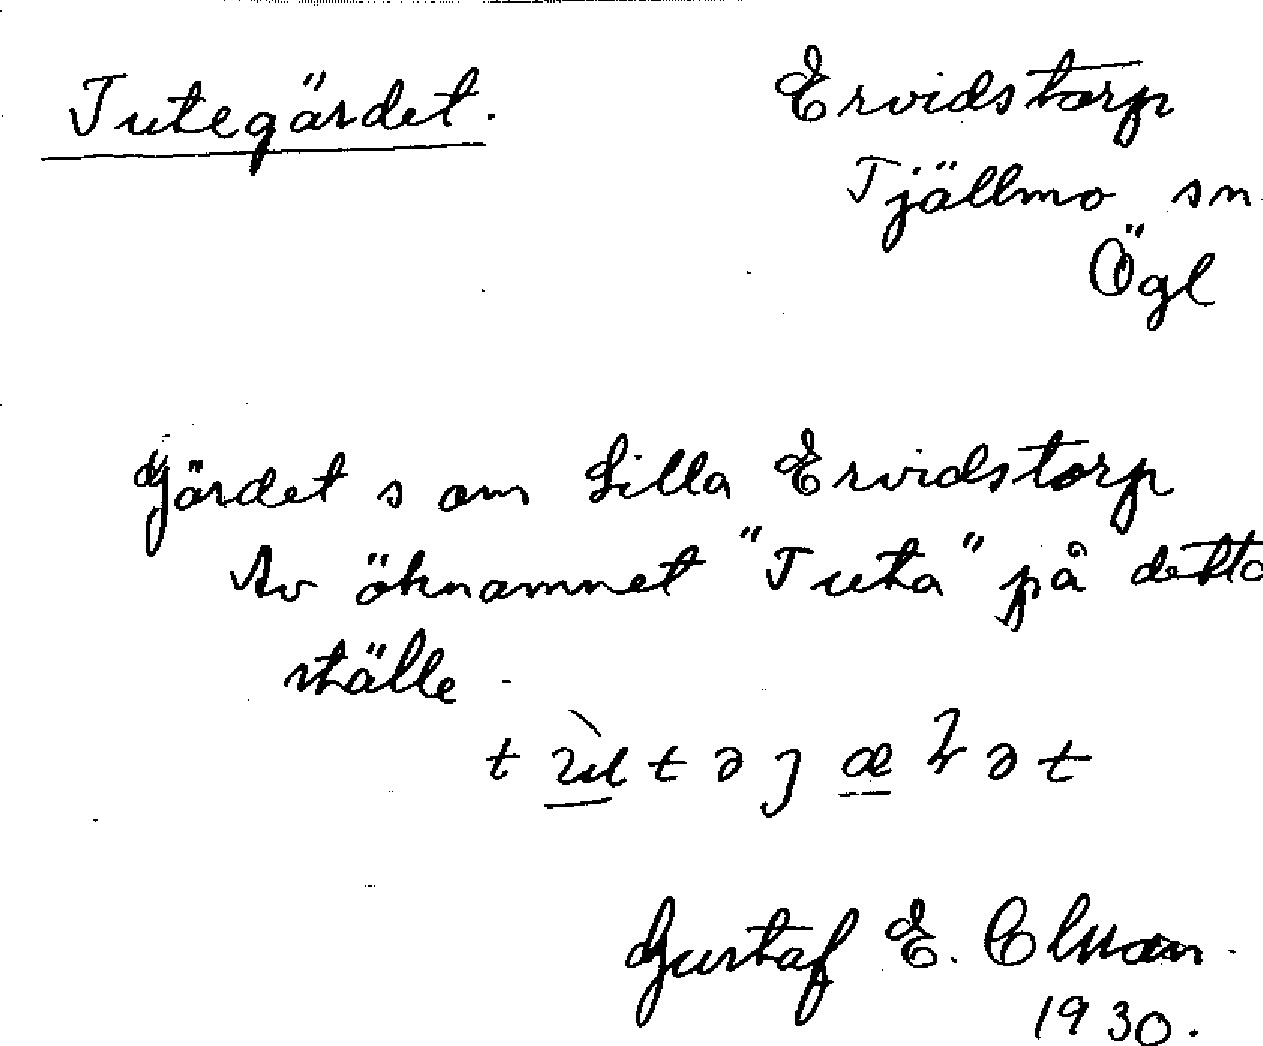 Tutegärdet. Ervidstorp
Tjällmo sn
Ögl
Gärdet s om Lilla Ervidstorp
Av öknamnet "Tuta" på detta
ställe
Gustaf E.
1930.